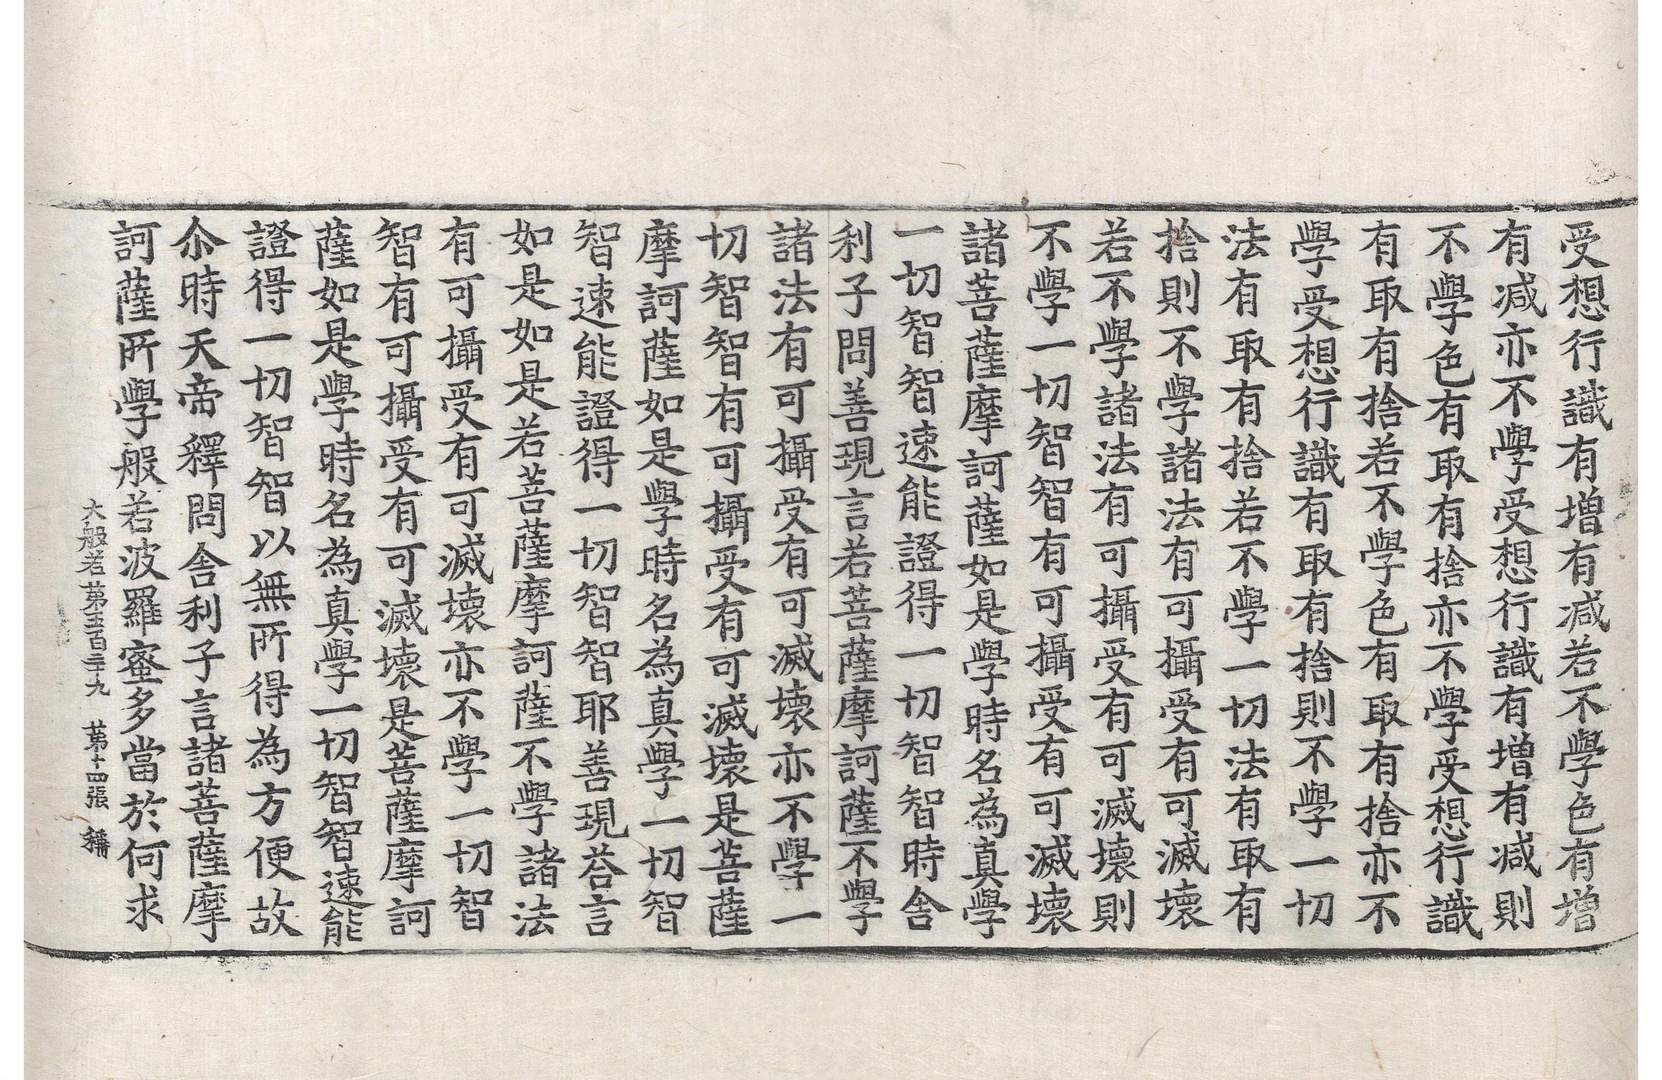 受想行識有增有減若不學色有增
有減亦不學受想行識有增有減則
不學色有取有捨亦不學受想行識
有取有捨若不學色有取有捨亦不
學受想行識有取有捨則不學一切
法有取有捨若不學一切法有取有
捨則不學諸法有可攝受有可滅壞
若不學諸法有可攝受有可滅壞則
不學一切智智有可攝受有可滅壞
諸菩薩摩訶薩如是學時名為真學
一切智智速能證得一切智智時舍
利子問善現言若菩薩摩訶薩不學
諸法有可攝受有可滅壞亦不學一
切智智有可攝受有可滅壞是菩薩
摩訶薩如是學時名為真學一切智
智速能證得一切智智耶善現荅言
如是如是若菩薩摩訶薩不學諸法
有可攝受有可滅壞亦不學一切智
智有可攝受有可滅壞是菩薩摩訶
薩如是學時名為真學一切智智速能
證得一切智智以無所得為方便故
尒時天帝釋問舍利子言諸菩薩摩
訶薩所學般若波羅蜜多當於何求
大般若第五百三十九 第十四張 稱